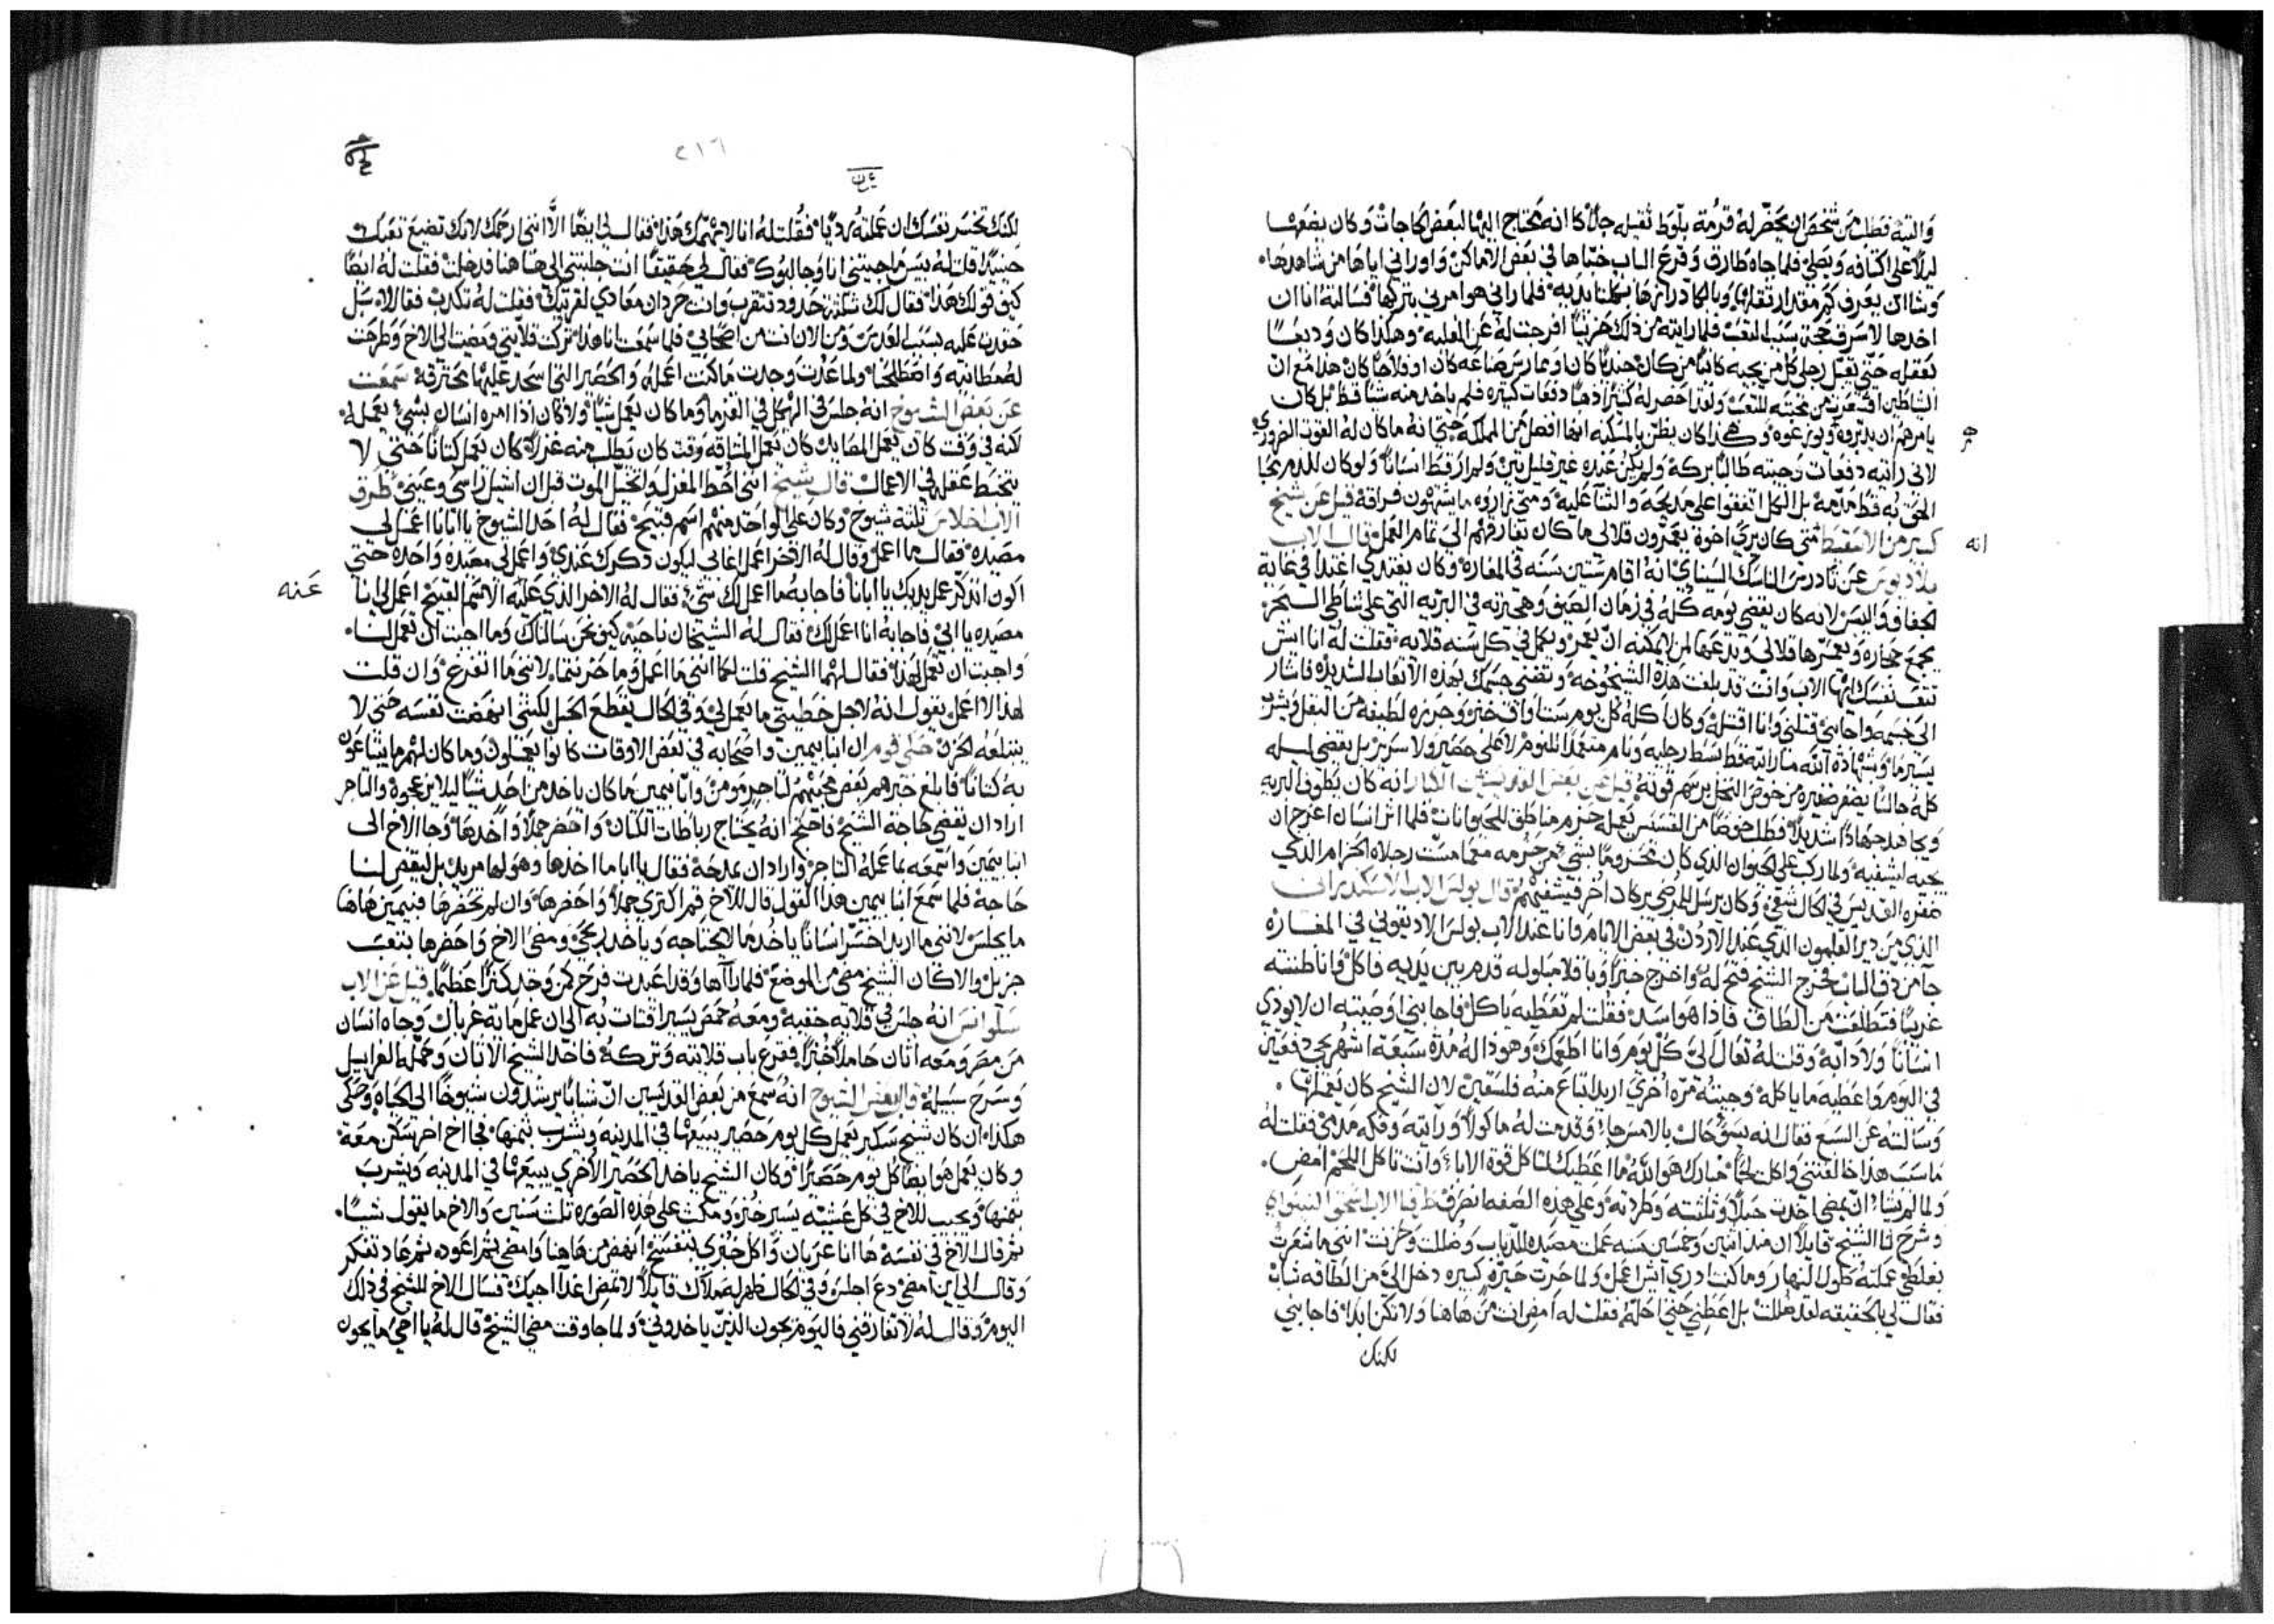 والتيه فطلب من شخص ان يحضر له قرمة بلوط ثقيله جدا كا انه محتاج اليها لبعض الحاجات وكان يضعها
ليلا على اكتافه ويصلي فلما جاه طارق وقرع الباب خباها في بعض الاماكن واوراني اياها من شاهدها
وشاان يعرف كم مقدار ثقلها وبالكاد رايزها بكلتا يديه فلما راني هو امرني بتركها فسالته انا ان
اخدها لاسرف محجة سبب التعب فلما رايته من ذلك حزينا افرجت له عن المغلبه وهكذا كان وديعا
بعقله حتى يقبل رجلي كل من يجيه كاينا من كان جنديا كان او عارس صناعه كان او فلاحا كان هذا مع ان
الشياطين
يامرهم ان يديروه ويوزعوه وهكذا كان يظن بالمسكنه انها افضل من المملكة حتى انه ما كان له القوت الضروري
لاني رايته دفعات وجيته طالبا بركة ولم يكن عنده غير قليل تين ولم ار قط انسانا ولو كان للدم محبا
الحق به قط مدمة بل الكل اتفقوا على مديحه والثنا عليه ومتى زاروه ما يشتهون فراقه قيل عن شيخ
كبير من الاسقيط متى كان يري اخوة يعمرون قلالي ما كان يفارقهم الى تمام العمل قال الاب
انه
بلاديوس عن تادرس الناسك السيناي انه اقام ستين سنه في المغاره وكان يغتدي اغتدا في غاية
الجفاف واليبس لانه كان يقضي يومه كله في زمان الصيف وهي تزنه في البريه التي على شاطي البحر
يجمع حجاره ويعمرها قلالي ويدعها لمن لا يمكنه ان يعمر ويكمل في كل سنه قلايه فقلت له انا ايش
تتعب نفسك ايها الاب وانت قد بلغت هذه الشيخوخه وتفني جسمك بهذه الاتعاب الشديده فاشار
الى جسمه واجابني قتلني وانا اقتله وكان اكله كل يوم ستا واق خبز وجرزه لطيفه من البقل ويشرب
يسير ما وبشهادة الله ما رايته قط بسط رجليه ونام متعمدا للنوم لا على حصير ولا سرير بل يقضي ليله
كله جالسا يضفر ضفيره من خوص النخل برسم قوته قيل عن بعض القديسين الكبار انه كان يطوف البريه
ويجاهد جهادا شديدا فطلب خوصا من القسيس يعمله حزم مناطق للحيوانات فلما اثر انسان اعرج ان
يجيه ليشفيه ولما ركب على الحيوان الذي كان محزوما بشي من حزمه معما مست رجلاه الحزام الذي
ضفره القديس في الحال شفي وكان يرسل للمرضى بركات اخر فيشفيهم قال بولس الاب الاسكندراني
الذي من دير القلمون الذي عند الاردن في بعض الايام وانا عند الاب بولس الاد يقوني في المغاره
جا من دق الباب فخرج الشيخ فتح له واخرج خبزا وباقلا مبلوله قدم بين يديه فاكل وانا ظننته
غريبا فتطلعت من الطاق فاذا هو اسد فقلت لم تعطيه ياكل فاجابني اوصيته ان لا يودي
انسانا ولا دابة وقلت له تعال الي كل يوم وانا اطعمك وهو ذا له مدة سبعة اشهر يجي دفعتين
في اليوم واعطيه ما ياكله وجيته مره اخرى اريد ابتاع منه فلسقين لان الشيخ كان يعملها
وسالته عن السبع فقال انه بسو حال بالامس جا وقدمت له ماكولا ورايته وفكه مدمي فقلت له
ما سبب هذا خالفتني واكلت لحما مبارك هو الله ما اعطيك لتاكل قوة الابا وانت تاكل اللحم امض
ولما لم يشا ان يمضي اخدت حبلا وثلثته وطردته وعلى هذه الصفه انصرف قط قال الاب اسحق
وشرح لنا الشيخ قايلا ان مند اثنين وخمسين سنه عملت مصيده للدباب وضللت وحزنت انني ما شعرت
بغلطي عملته طول النهار وما كنت ادري ايش اعمل ولما حرت حيرة كبيره دخل الي من الطاقه شاب
فقال لي بالحقيقه لقد ضللت بل اعطني حتى احله فقلت له امض انت من هاهنا ولا تكن ابدا فاجابني
لكنك
٢١٦
لكنك تخسر نفسك ان عملته رديا فقلت له انا لا يهمك هذا فقال لي ايضا الا انني ارحمك لانك تضيع تعبك
حينيدا قلت له بيس ما جيتني انا وجا لبوك فقال لي حقيقا انت جلبتني الى هاهنا قد ضللت فقلت له ايضا
كيف قولك هذا فقال لك ثلثة حدود تتقرب وانت حردان معادي لقريبك فقلت له تكدب فقال لا بل
حقدت عليه بسبب العدس ومن الان انت من اصحابي فلما سمعت انا هذا تركت قلايتي ومضيت الى الاخ وطرحت
له مطانيه واصطلحنا ولما عدت وجدت ما كنت اعمله والحصير التي اسجد عليها محترقة سمعت
عن بعض الشيوخ انه جلس في الهيكل في الفرما وما كان يعمل شيا ولا كان اذا امره انسان بشي يعمل له
لكنه في وقت كان يعمل المصايد كان يعمل المشاقه وقت كان يطلب منه غزلا كان يعمل كتانا حتى لا
يتخبط عقله في الاعمال قال شيخ انني احط المغزل واتخيل الموت قبل ان اشيل راسي وعيني طرق
الاب اخلاس ثلثة شيوخ وكان على الواحد منهم اسم قبيح فقال له احد الشيوخ يا ابانا اعمل لي
مصيده فقال ما اعمل وقال له الاخر اعمل اغابي ليكون ذكرك عندي واعمل لي مصيده واحده حتى
اكون اتدكر عمل يديك يا ابانا فاجابه ما اعمل لك شي فقال له الاخر الذي عليه الاسم القبيح اعمل لي انا
عنه
مصيده يا ابي فاجابه انا اعمل لك فقال له الشيخان ناحية كيف نحن سالناك وما اجبت ان تعمل لنا
واجبت ان تعمل لهذا فقال لهما الشيخ قلت لكما انني ما اعمل وما حزنتما لانني ما اتفرغ وان قلت
لهذا لا اعمل يقول انه لاجل خطيتي ما يعمل لي وفي الحال يقطع الحبل لكنني انهضت نفسه حتى لا
يبتلعه الحزن حكى قوم ان انبا بيمين واصحابه في بعض الاوقات كانوا يعملون وما كان لهم ما يبتاعون
به كتانا فابلغ خبرهم بعض محبيهم لتاجر مومن وانبا بيمين ما كان ياخد من احد شيا ليلا يزعجوه والتاجر
اراد ان يقضي حاجة الشيخ فاحتج انه يحتاج رباطات الكتان واحضر جملا واخدها وجا الاخ الى
انبا بيمين واسمعه بما عمله التاجر واراد ان يمدحة فقال يا ابا ما اخدها وهو لها مريد بل ليقضي لنا
حاجة فلما سمع انبا بيمين هذا القول قال للاخ قم اكتري جملا واحضرها وان لم تحضرها فبيمين هاهنا
ما يجلس لانني ما اريد اخسر انسانا ياخدها لا يحتاجه وياخد ربحي ومضى الاخ واحضرها بتعب
جزيل والا كان الشيخ مضى من الموضع فلما راها وقد اعيدت فرح كمن وجد كنزا عظيما قيل عن الاب
سلوانس انه جلس في قلايه حقبة ومعه حمص يسير اقتات به الى ان عمل ماية غربال وجاه انسان
من مصر ومعه اتان حاملا خبزا فقرع باب قلايته وتركه فاخد الشيخ الاتان وحمله الغرابيل
وسرح سبيله قال بعض الشيوخ انه سمع من بعض القديسين ان شبانا يرشدون شيوخا الى الحياه وحكى
هكذا ان كان شيخ سكير يعمل كل يوم حصير يبيعها في المدينه ويشرب بثمنها فجا اخ اخر سكن معه
وكان يعمل هو ايضا كل يوم حصيرا وكان الشيخ ياخد الحصير الاخرى يبيعها في المدينه ويشرب
بثمنها ويجيب للاخ في كل عشية يسير خبز ومكث على هذه الصوره ثلث سنين والاخ ما يقول شيا
ثم قال الاخ في نفسه ها انا عريان واكل خبزي بتفسخ انهض من هاهنا وامضي ثم اعود ثم عاد تفكر
وقال الى اين امضي دع اجلس وفي الحال ظهر له ملاك قايلا لا تمض غدا اجيك فسال الاخ للشيخ في ذلك
اليوم وقال له لا تفارقني فاليوم يجون الذين ياخدوني ولما جا وقت مضي الشيخ قال له يا اخي ما يجون